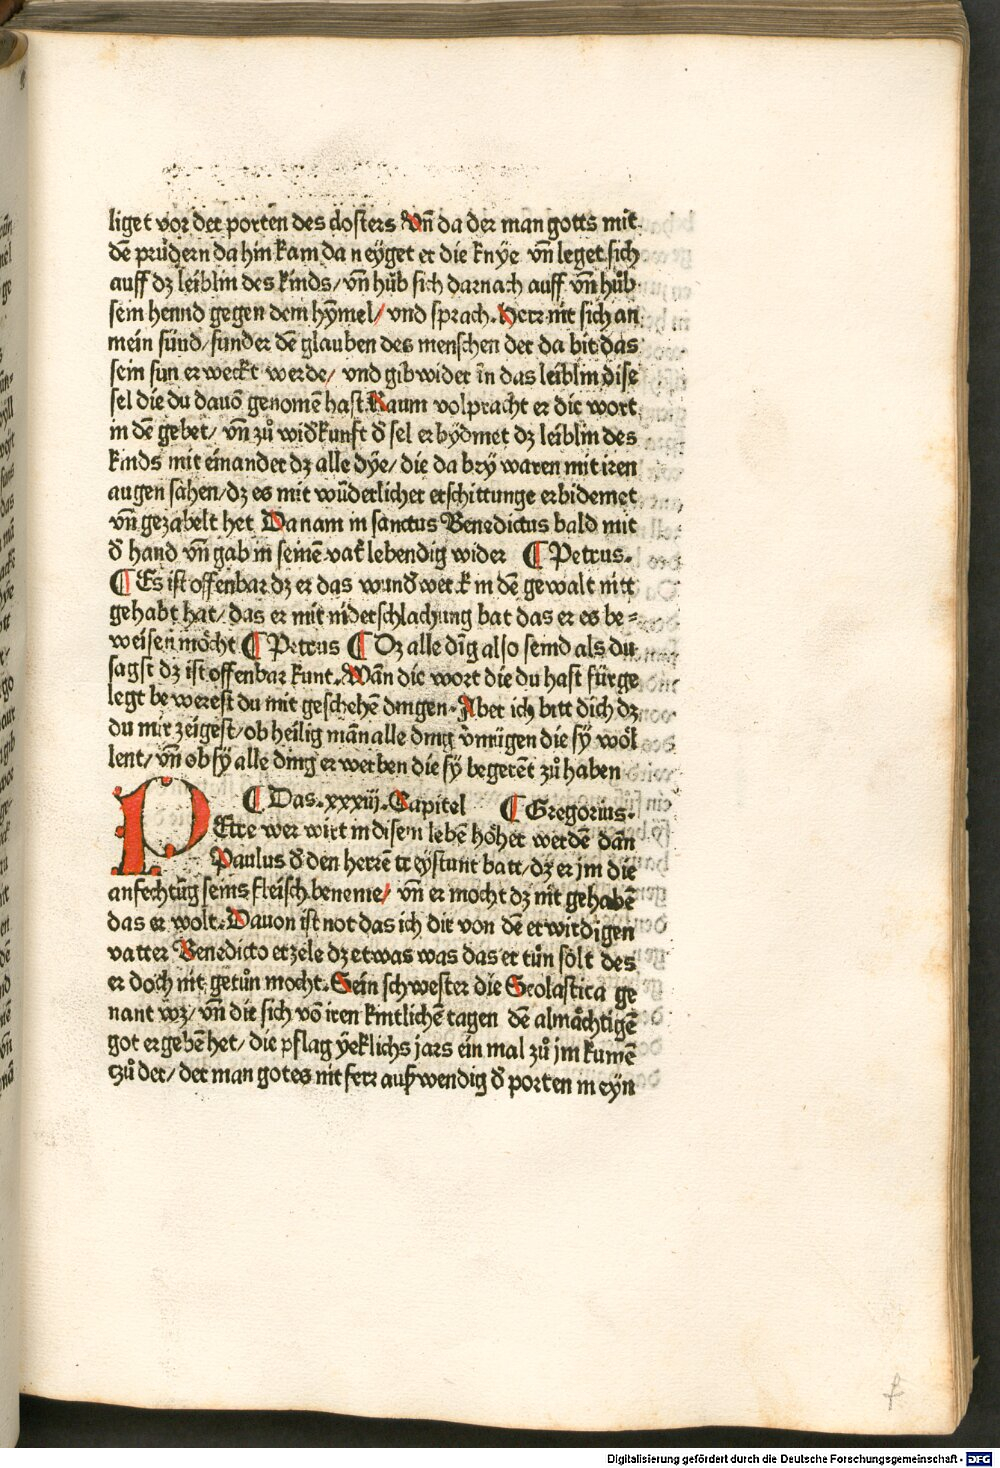 liget vor der porten des closters Vn̄ da der man gotts mit
dē průdern da hin kam da neyget er die knye vn̄ leget sich
auff dz leiblin des kinds/ vn̄ hůb sich darnach auff vn̄ hůb
sein hennd gegen dem hym̄el/ vnd sprach. Herr nit sich an
mein sünd/ sunder dē glauben des menschen der da bit das
sein sun erweckt werde/ vnd gib wider in das leiblin dise
sel die du dauō genomē hast. Kaum volpracht er die wort
in dē gebet/ vn̄ zů widkunft d̄ sel erbydmet dz leiblin des
kinds mit einander dz alle dye/ die da bey waren mit iren
augen sahen/ dz es mit wūderlicher erschittunge erbidemet
vn̄ gezabelt het Da nam in sanctus Benedictus bald mit
d̄ hand vn̄ gab in seinē vat̄ lebendig wider ¶ Petrus.
¶ Es ist offenbar dz er das wund̄werck in dē gewalt nitt
gehabt hat/ das er mit niderschlachung bat das er es be⸗
weisen mȯcht ¶ Petrus ¶ Dz alle dīg also seind als du
sagst dz ist offenbar kunt. Wān die wort die du hast fürge
legt bewerest du mit geschehē dingen. Aber ich bitt dich dz
du mir zeigest/ ob heilig mān alle ding v̄mügen die sy wȯl
lent/ vn̄ ob sy alle ding erwerben die sy begerēt zů haben
¶ Das .xxxiij. Capitel ¶ Gregorius.
PEtre wer wirt in disem lebē hȯher werdē dān
Paulus d̄ den herrē treystunt batt/ dz er jm die
anfechtūg seins fleisch beneme/ vn̄ er mocht dz nit gehabē
das er wolt. Dauon ist not das ich dir von dē erwirdigen
vatter Benedicto erzele dz etwas was das er tůn sȯlt des
er doch nit getůn mocht. Sein schwester die Scolastica ge
nant wz/ vn̄ die sich vō iren kintlichē tagen dē almȧchtigē
got ergebē het/ die pflag yeklichs jars ein mal zů jm kumē
tzů der/ der man gotes nit ferr außwendig d̄ porten in eyn
f
Digitalisierung gefördert durch die Deutsche Forschungsgemeinschaft - DFG